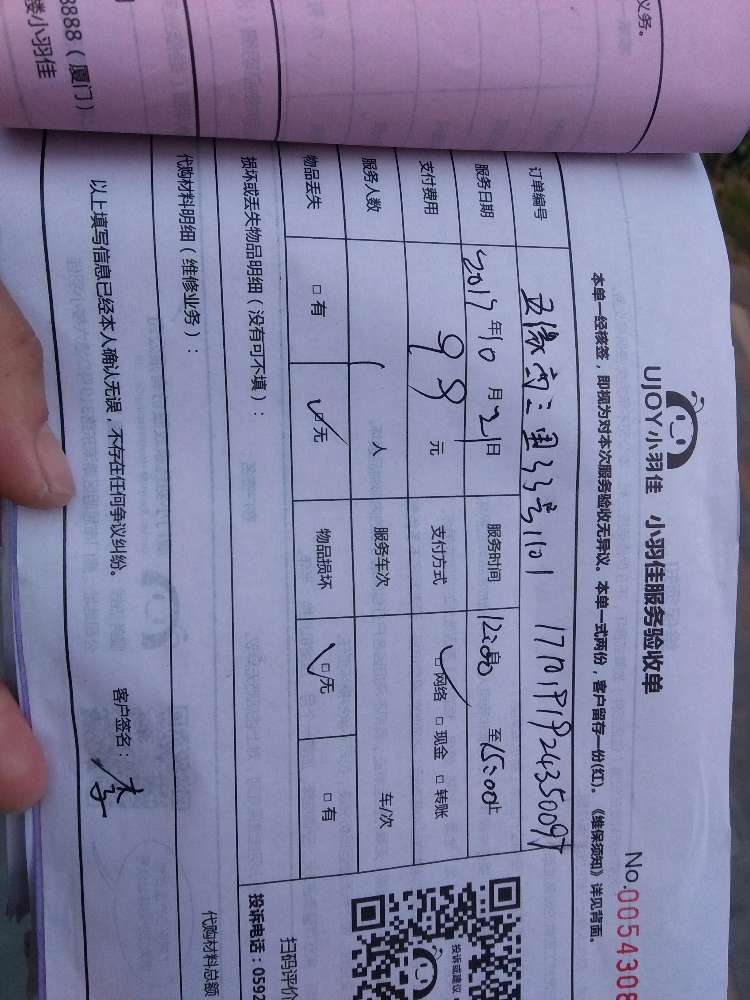 义务。
8888（厦门）
楼小羽佳
UJOY小羽佳 小羽佳服务验收单
No.0054308
本单一经核签，即视为对本次服务验收无异议。本单一式两份，客户留存一份(红)。《维保须知》详见背面。
订单编号 五缘南二里33号1101 1710191924350097
服务日期 2017年10月21日 服务时间 12:00 至 15:00止
支付费用 98元 支付方式 ☑网络 □现金 □转账
服务人数 1 人 服务车次 车/次
物品丢失 □有 ☑无 物品损坏 ☑无 □有
损坏或丢失物品明细（没有可不填）：
代购材料明细（维修业务）： 代购材料总额
以上填写信息已经本人确认无误，不存在任何争议纠纷。 客户签名：李
投诉或建议
扫码评价
投诉电话：0592